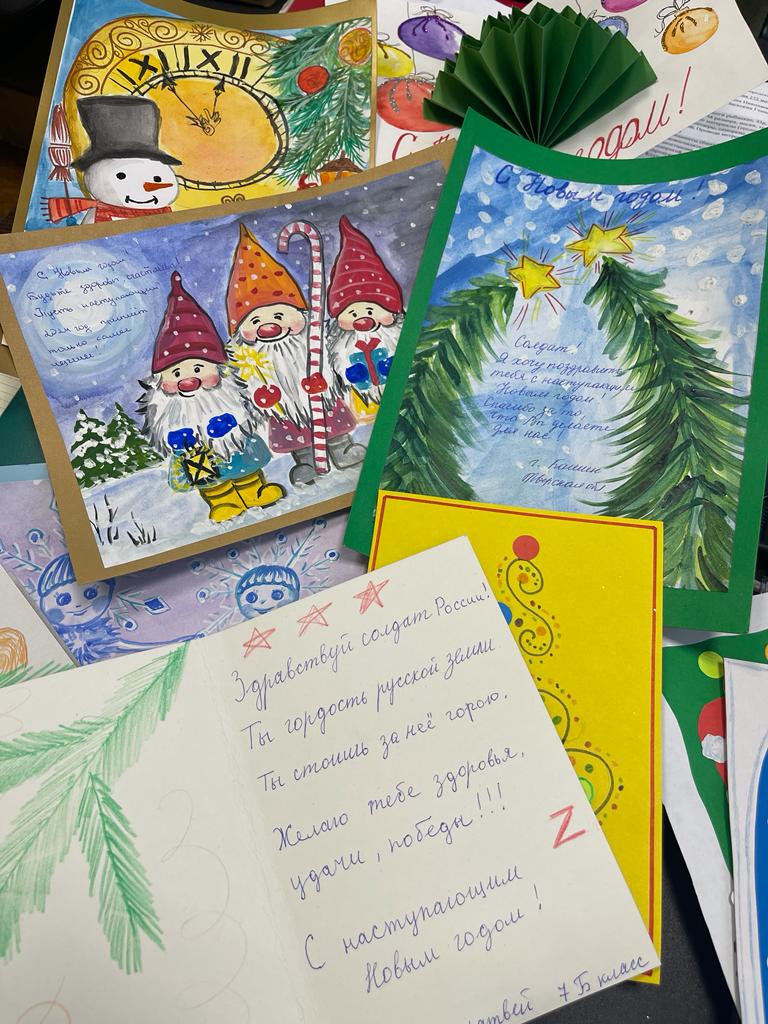 XI XII
С
годом!
С Новым годом!
Будьте здоровы счастливы!
Пусть наступающий
2024 год принесёт
только самое
С Новым годом!
Солдат!
Я хочу поздравить
тебя с наступающим
Новым годом!
Спасибо за то,
что Вы делаете
для нас
г. Кашин
Тверская обл
Здравствуй солдат России!
Ты гордость русской земли.
Ты стоишь за неё горою.
Желаю тебе здоровья,
удачи, победы!!!
Z
С наступающим
Новым годом!
7 Б класс